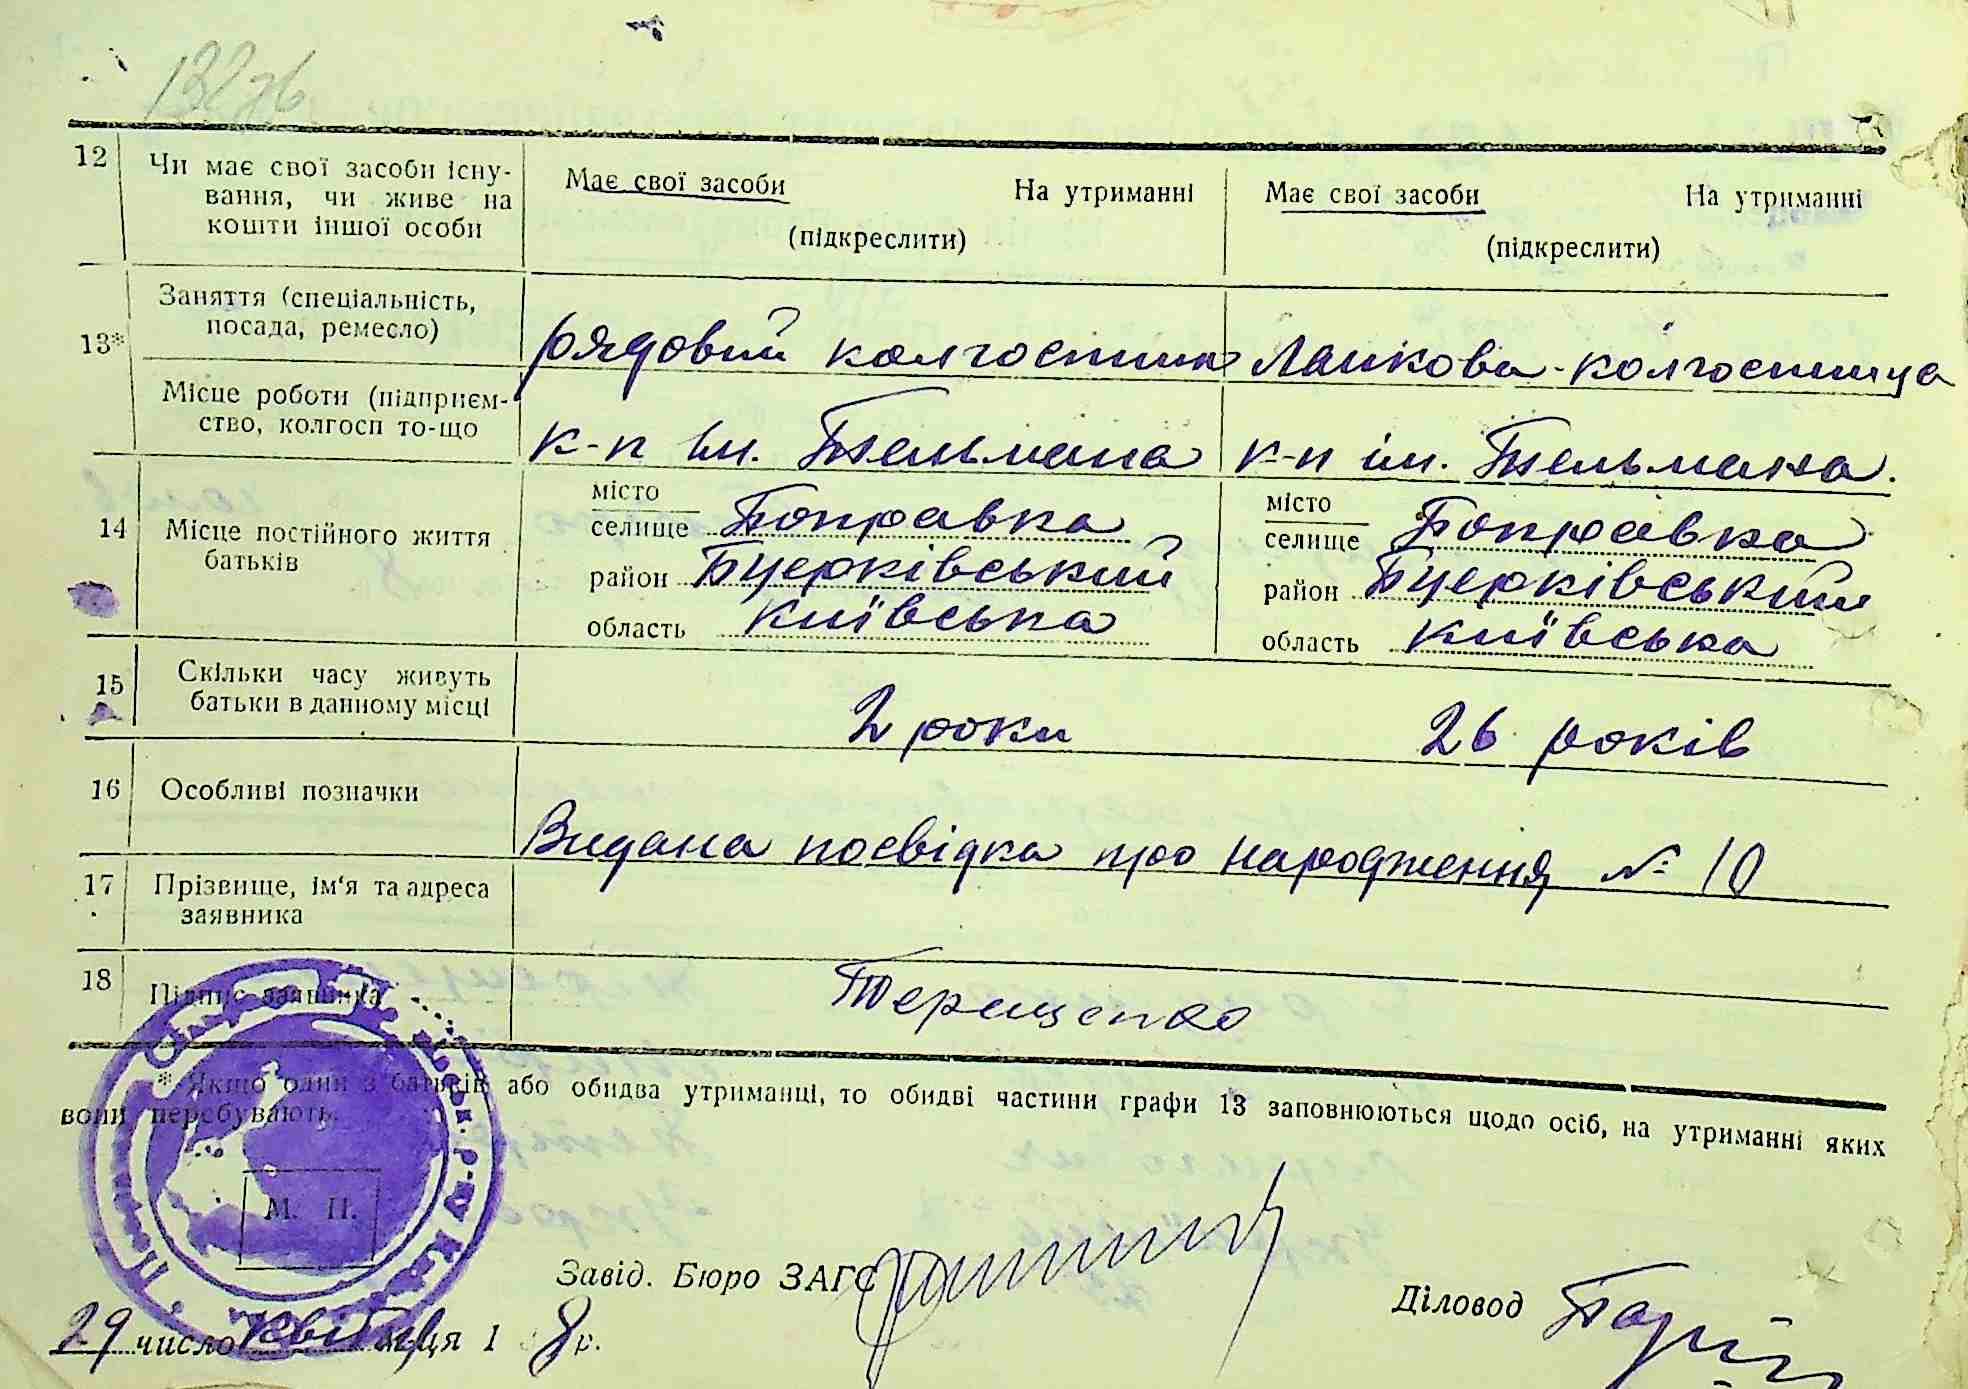 132зв
12 Чи має свої засоби існу-
вання, чи живе на
кошти іншої особи
Має свої засоби На утриманні
(підкреслити)
Має свої засоби На утриманні
(підкреслити)
13* Заняття (спеціальність,
посада, ремесло)
рядовий колгоспник
Ланкова-колгоспниця
Місце роботи (підприєм-
ство, колгосп то-що
к-п ім. Тельмана
к-п ім. Тельмана.
14 Місце постійного життя
батьків
місто
селище Поправка
район Бцерківський
область Київська
місто
селище Поправка
район Бцерківський
область Київська
15 Скільки часу живуть
батьки в данному місці
2 роки
26 років
16 Особливі позначки
Видана посвідка про народження № 10
17 Прізвище, ім'я та адреса
заявника
18 Підпис заявника
Терещенко
* Якщо один з батьків або обидва утриманці, то обидві частини графи 13 заповнюються щодо осіб, на утриманні яких
вони перебувають.
М. П.
Завід. Бюро ЗАГС
Діловод
29 число квітня м-ця 1 8 р.